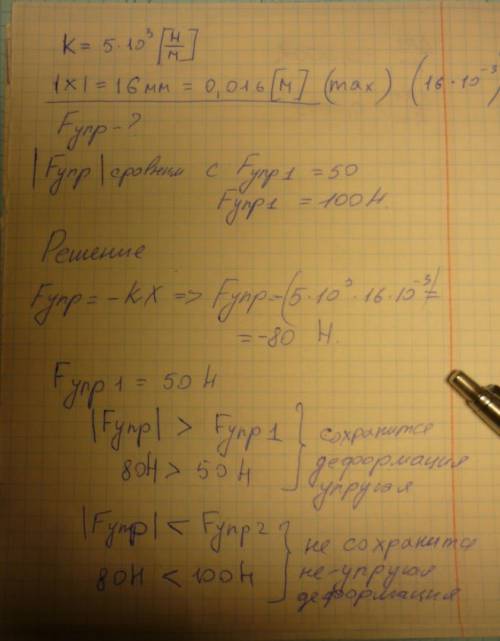 K = 5·10³ [Н/м]
|X| = 16 мм = 0,016 [м] (max) (16·10⁻³)
Fупр - ?
|Fупр| сравним с Fупр1 = 50
Fупр1 = 100 Н.
Решение
Fупр = -KX => Fупр = -(5·10³·16·10⁻³) =
= -80 Н.
Fупр1 = 50 Н
|Fупр| > Fупр1
80Н > 50 Н
} сохранится
деформация
упругая
|Fупр| < Fупр2
80Н < 100Н
} не сохранится
не-упругая
деформация